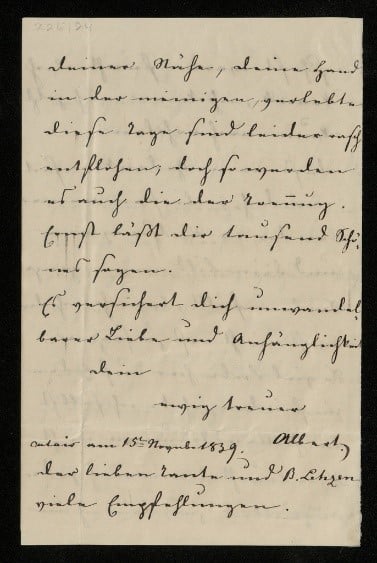 deiner Nähe, deine Hand
in der meinigen, verlebte
diese Tage sind leider rasch
entflohen, doch so werden
es auch die der Trennung.
Ernst läßt dir tausend Schö-
nes sagen.
Es versichert dich unwandel-
barer Liebe und Anhänglichkeit
dein
ewig treuer
Calais am 15t Novembr 1839. Albert.
der lieben Tante und B. Lehzen
viele Empfehlungen.